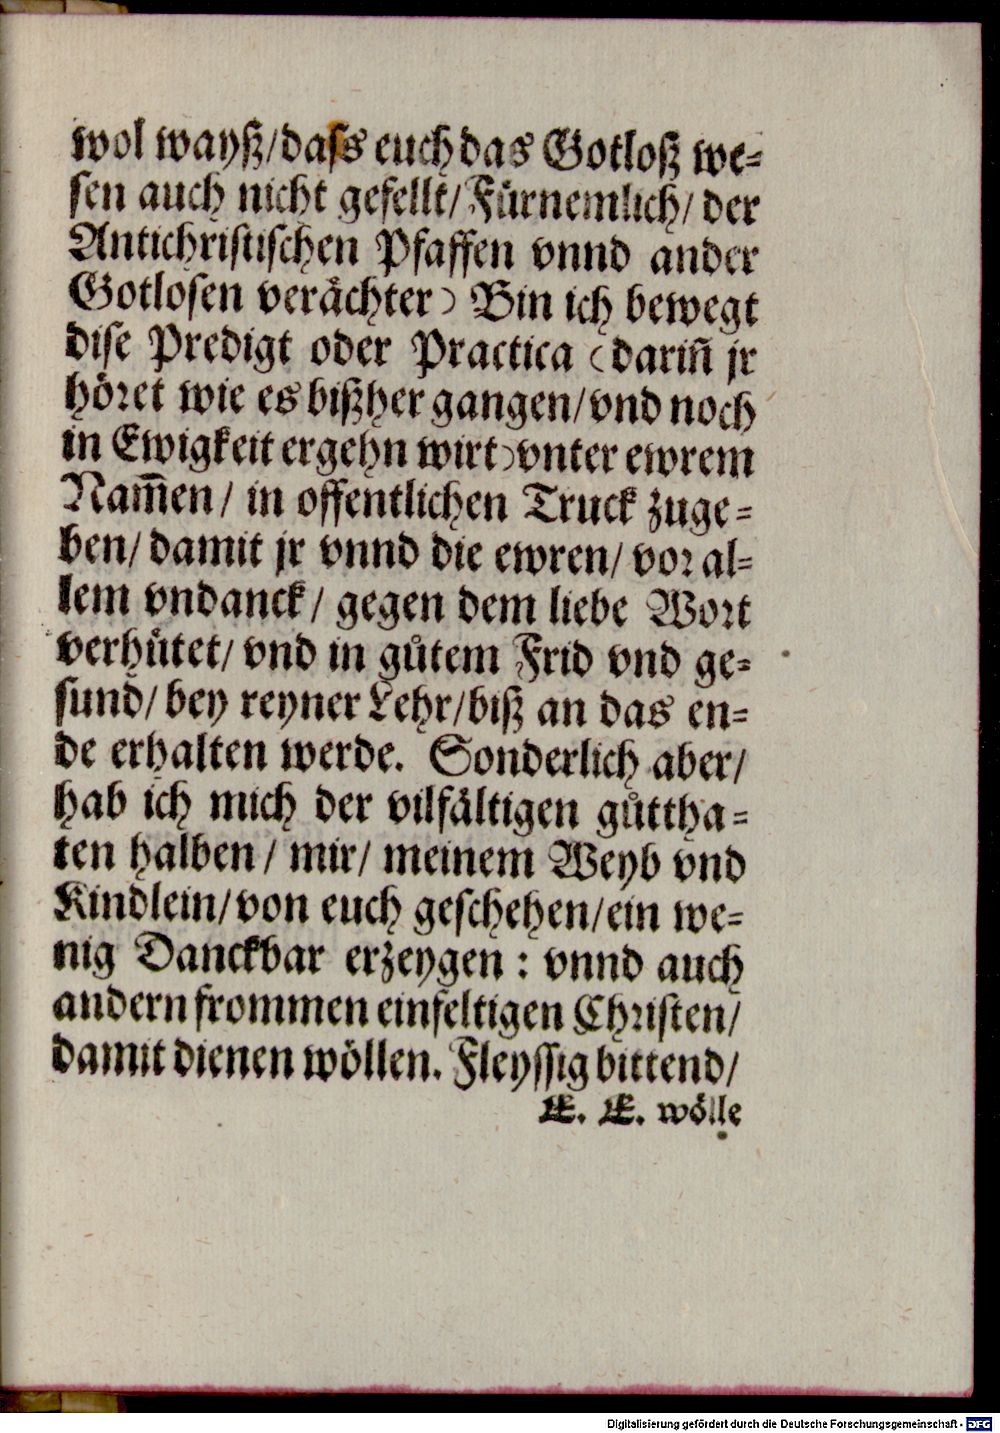 wol wayß/dass euch das Gotloß we-
sen auch nicht gefellt/Fürnemlich/ der
Antichristischen Pfaffen vnnd ander
Gotlosen verächter) Bin ich bewegt
dise Predigt oder Practica (dariñ jr
höret wie es bißher gangen/vnd noch
in Ewigkeit ergehn wirt)vnter ewrem
Nam̃en/ in offentlichen Truck zuge-
ben/ damit jr vnnd die ewren/ vor al-
lem vndanck/ gegen dem liebe Wort
verhütet/ vnd in gůtem Frid vnd ge-
sund/ bey reyner Lehr/biß an das en-
de erhalten werde. Sonderlich aber/
hab ich mich der vilfältigen gůttha-
ten halben/ mir/ meinem Weyb vnd
Kindlein/von euch geschehen/ein we-
nig Danckbar erzeygen : vnnd auch
andern frommen einfeltigen Christen/
damit dienen wöllen. Fleyssig bittend/
E. E. wölle
Digitalisierung gefördert durch die Deutsche Forschungsgemeinschaft - DFG